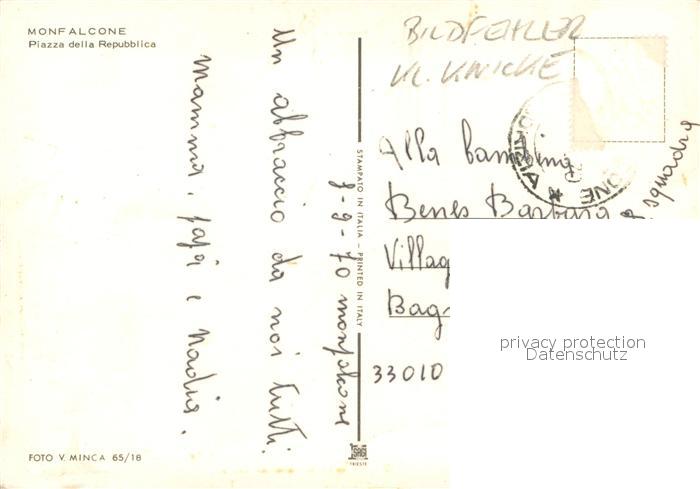 MONFALCONE
Piazza della Repubblica
Un abbraccio da noi tutti.
mamma, papà e nadia.
8-9-70 monfalcone
STAMPATO IN ITALIA - PRINTED IN ITALY
TRIESTE
FOTO V. MINCA 65/18
BILDFEHLER
KL. KNICKE
Alla bambina
Benes Barbara
squadra
Villag
Bag
33010
privacy protection
Datenschutz